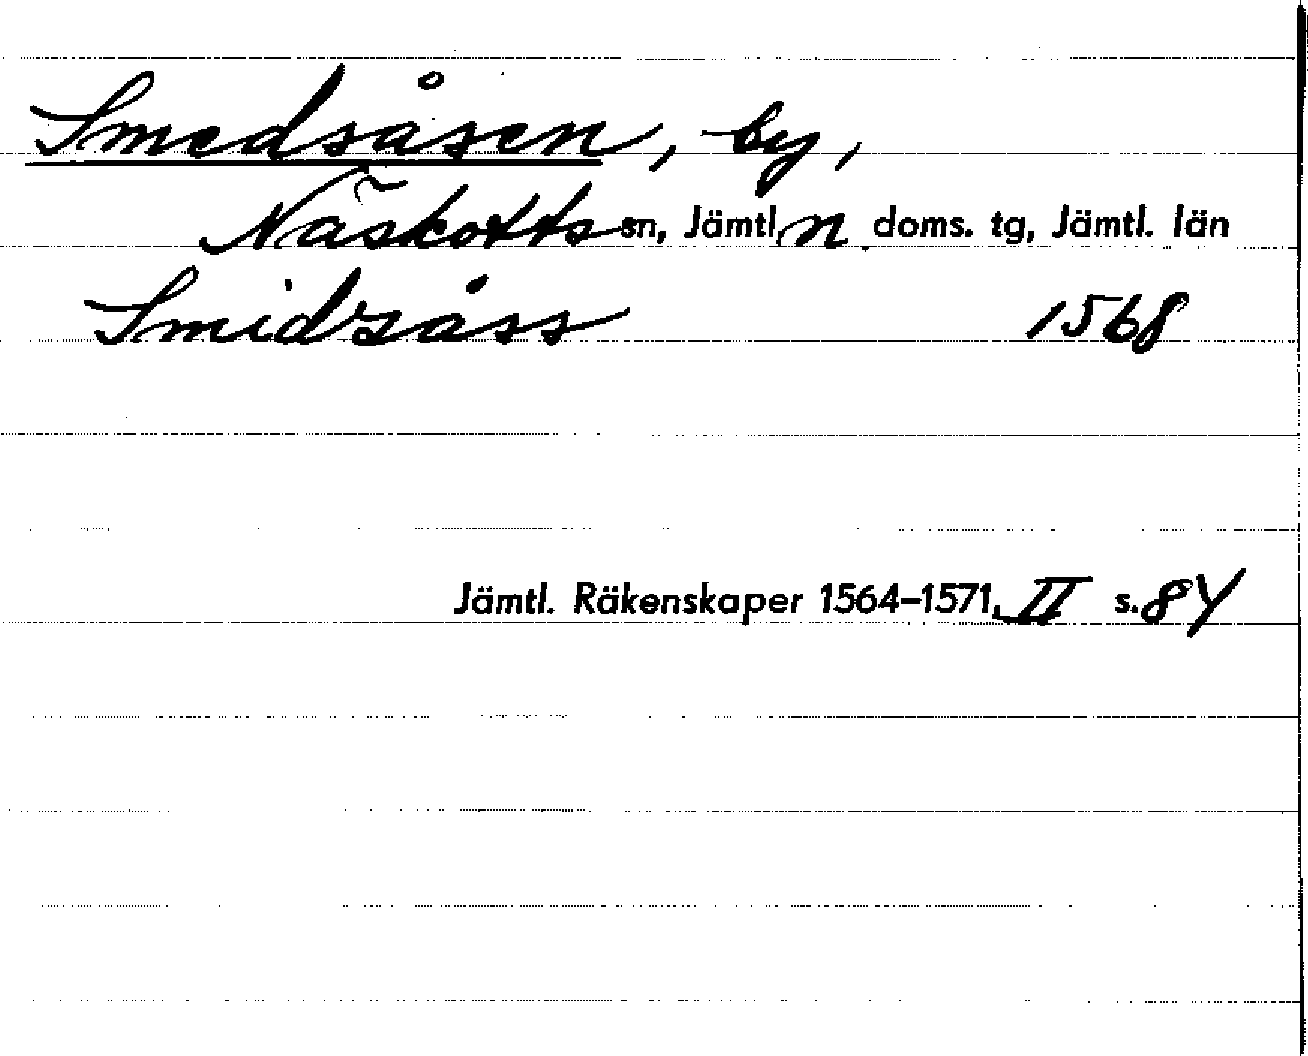 Smedsåsen, by,
Näskotts sn, Jämtl. n doms. tg, Jämtl. län
Smidzåss 1568
Jämtl. Räkenskaper 1564–1571, II s. 84